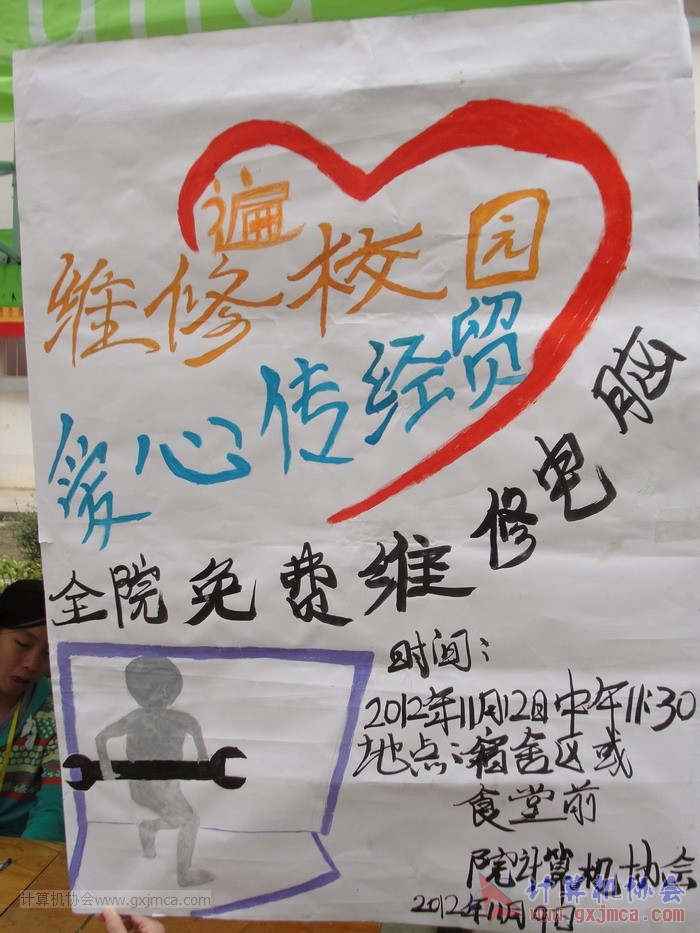 维修遍校园
爱心传经贸
全院免费维修电脑
时间:
2012年11月12日中午11:30
地点:宿舍区或
食堂前
院计算机协会
2012年11月9日
计算机协会www.gxjmca.com
计算机协会
www.gxjmca.com